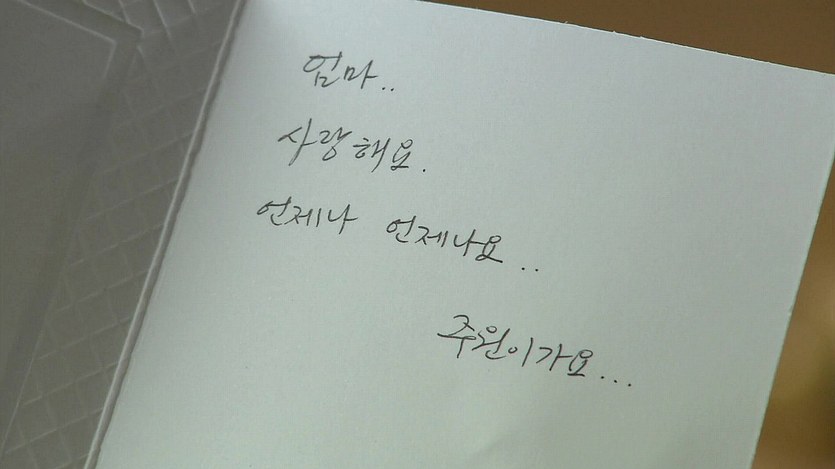 엄마..
사랑해요.
언제나 언제나요..
주원이가요...